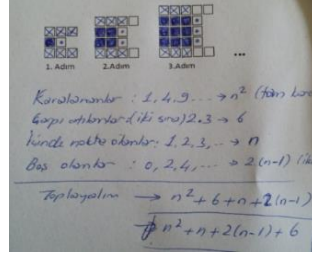 1. Adım 2.Adım 3.Adım ...
Karalananlar : 1, 4, 9 ... → n² (tam
Çarpı atılanlar: (iki sıra) 2.3 → 6
İçinde nokta olanlar: 1, 2, 3, .. → n
Boş olanlar : 0, 2, 4, ... → 2(n-1)
Toplayalım → n² + 6 + n + 2(n-1)
n² + n + 2(n-1) + 6